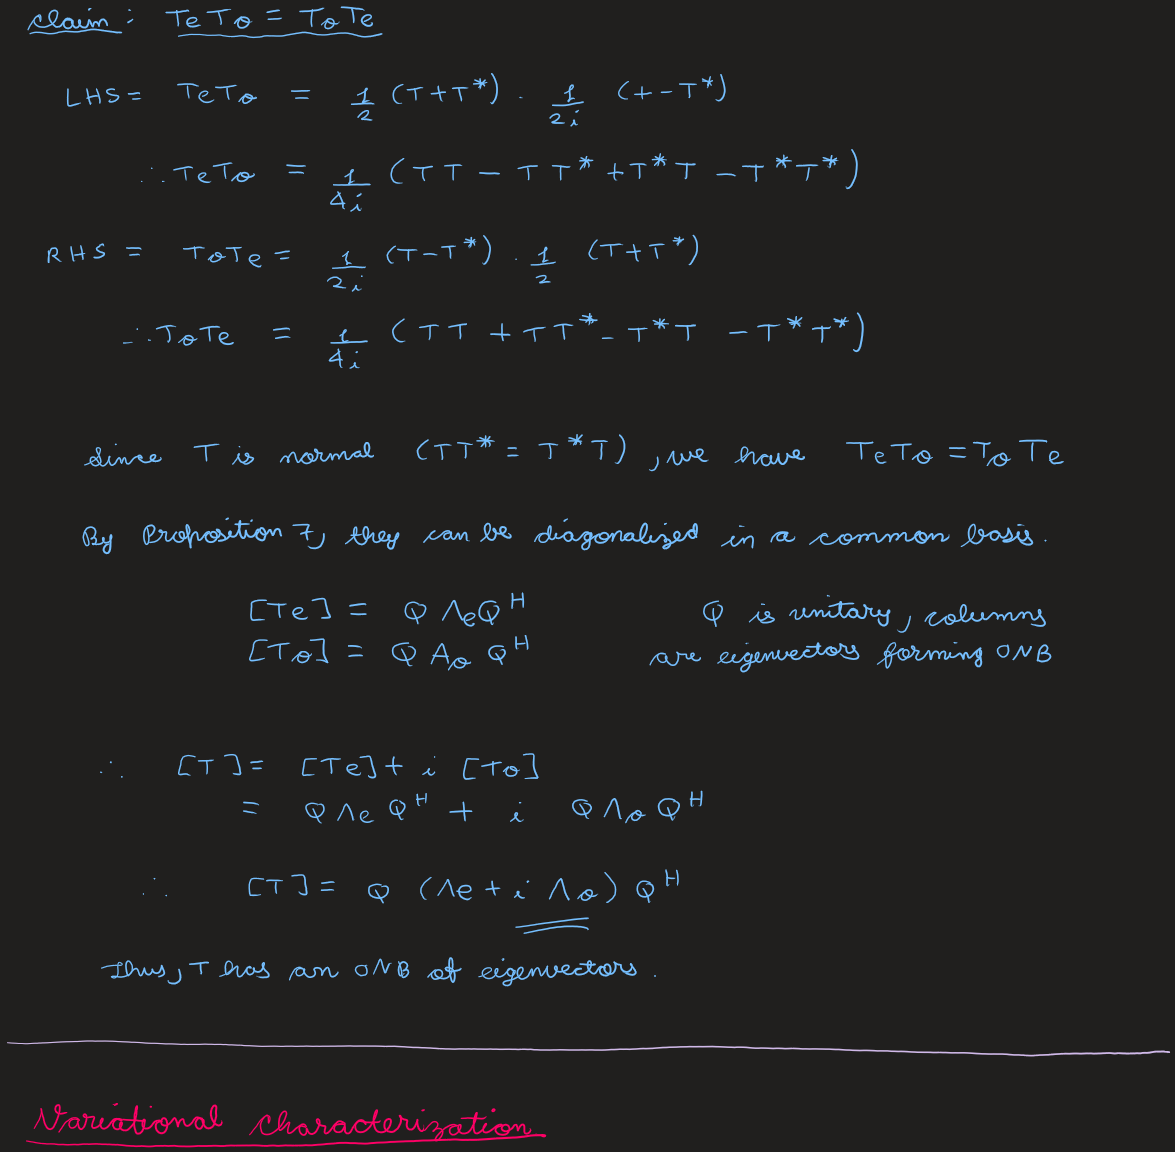 claim: TeTo = ToTe
LHS = TeTo = 1/2 (T+T*) . 1/2i (+-T*)
∴ TeTo = 1/4i (TT - TT* + T*T - T*T*)
RHS = ToTe = 1/2i (T-T*) . 1/2 (T+T*)
∴ ToTe = 1/4i (TT + TT* - T*T - T*T*)
Since T is normal (TT* = T*T), we have TeTo = ToTe
By Proposition 7, they can be diagonalized in a common basis.
[Te] = Q Λe Q^H Q is unitary, columns
[To] = Q Λo Q^H are eigenvectors forming ONB
∴ [T] = [Te] + i [To]
= Q Λe Q^H + i Q Λo Q^H
∴ [T] = Q (Λe + i Λo) Q^H
Thus, T has an ONB of eigenvectors.
Variational characterization